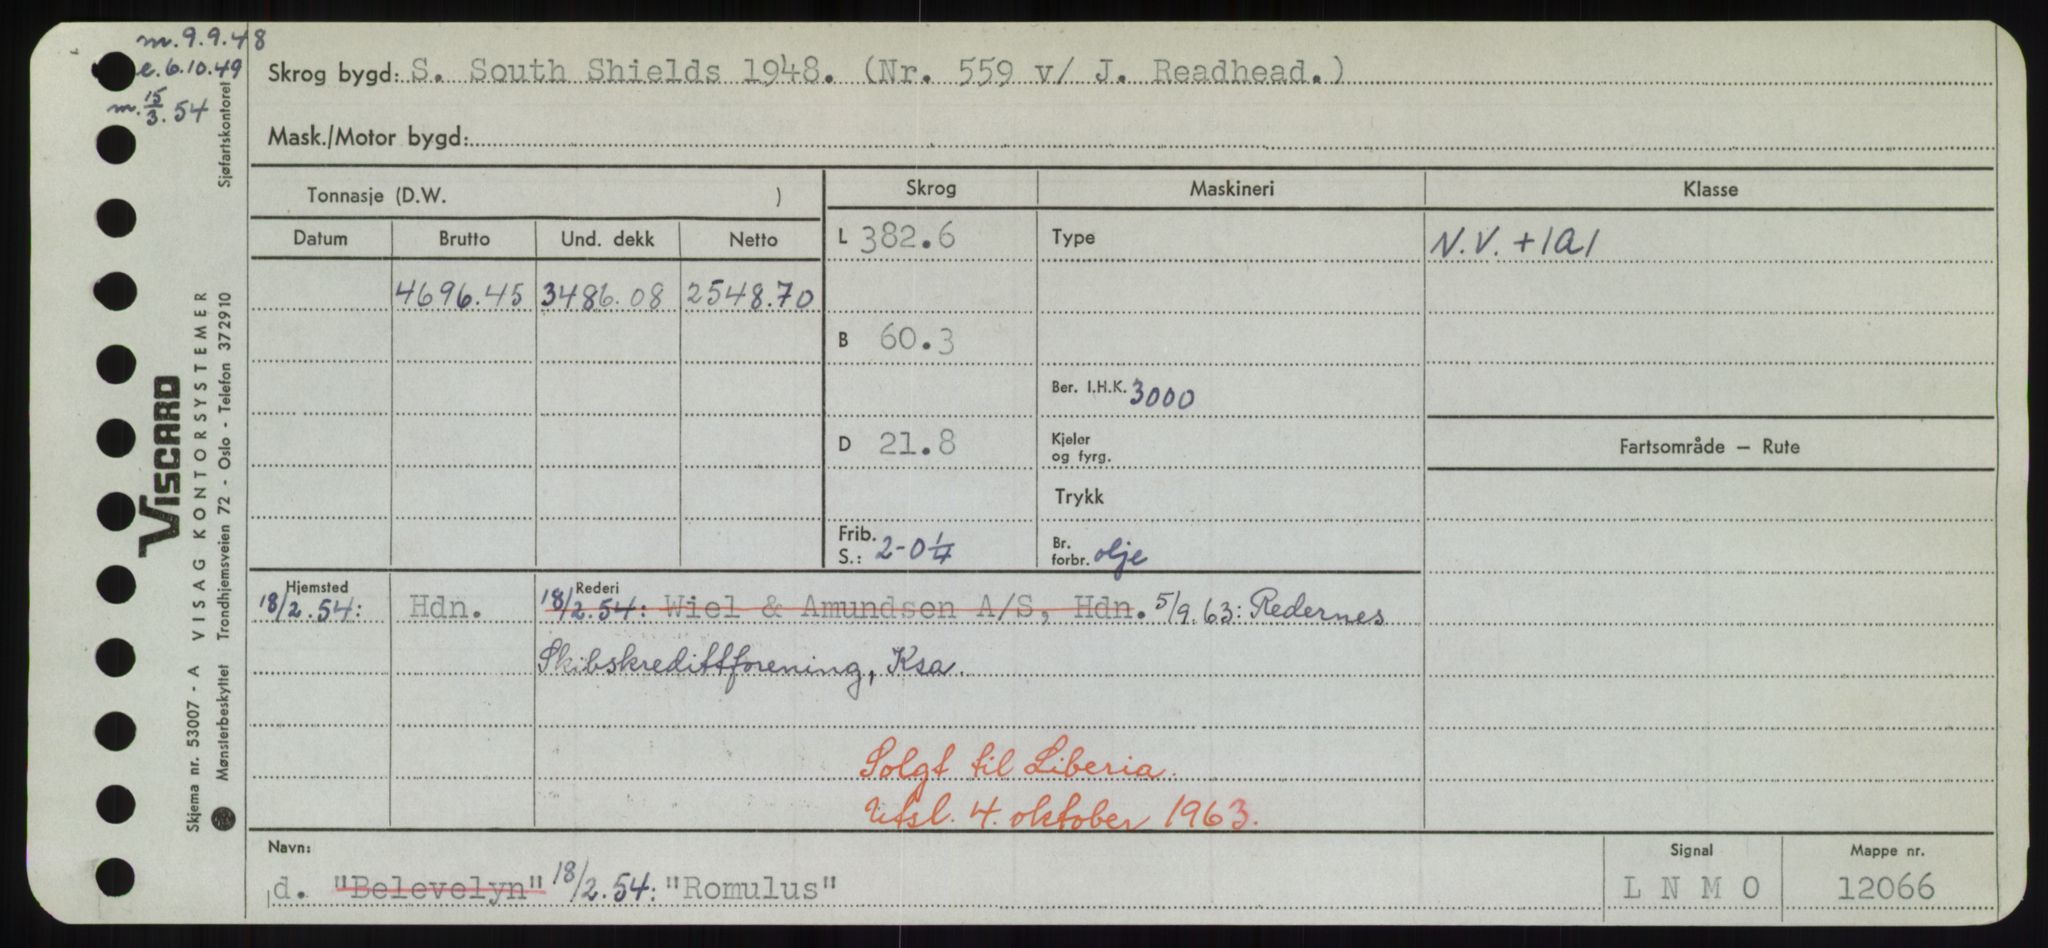 m. 9.9.48
e. 6.10.49
m. 15/3.54
Skrog bygd: S. South Shields 1948. (Nr. 559 v/ J. Readhead.)
Mask./Motor bygd:
Tonnasje (D.W. )
Datum Brutto Und. dekk Netto
4696.45 3486.08 2548.70
Skrog
L 382.6
B 60.3
D 21.8
Frib.
S.: 2-0 1/4
Maskineri
Type
Ber. I.H.K. 3000
Kjeler
og fyrg.
Trykk
Br.
forbr. olje
Klasse
N.V. +1A1
Fartsområde — Rute
Hjemsted
18/2.54: Hdn.
Rederi
18/2.54: Wiel & Amundsen A/S, Hdn. 5/9.63: Redernes
Skibskredittforening, Ksa.
Solgt til Liberia.
Utsl. 4. oktober 1963.
Navn:
d. "Belevelyn" 18/2.54: "Romulus"
Signal
L N M O
Mappe nr.
12066
Sjøfartskontoret
VISCARD
Skjema nr. 53007 - A VISAG KONTORSYSTEMER
Mønsterbeskyttet Trondhjemsveien 72 - Oslo - Telefon 372910